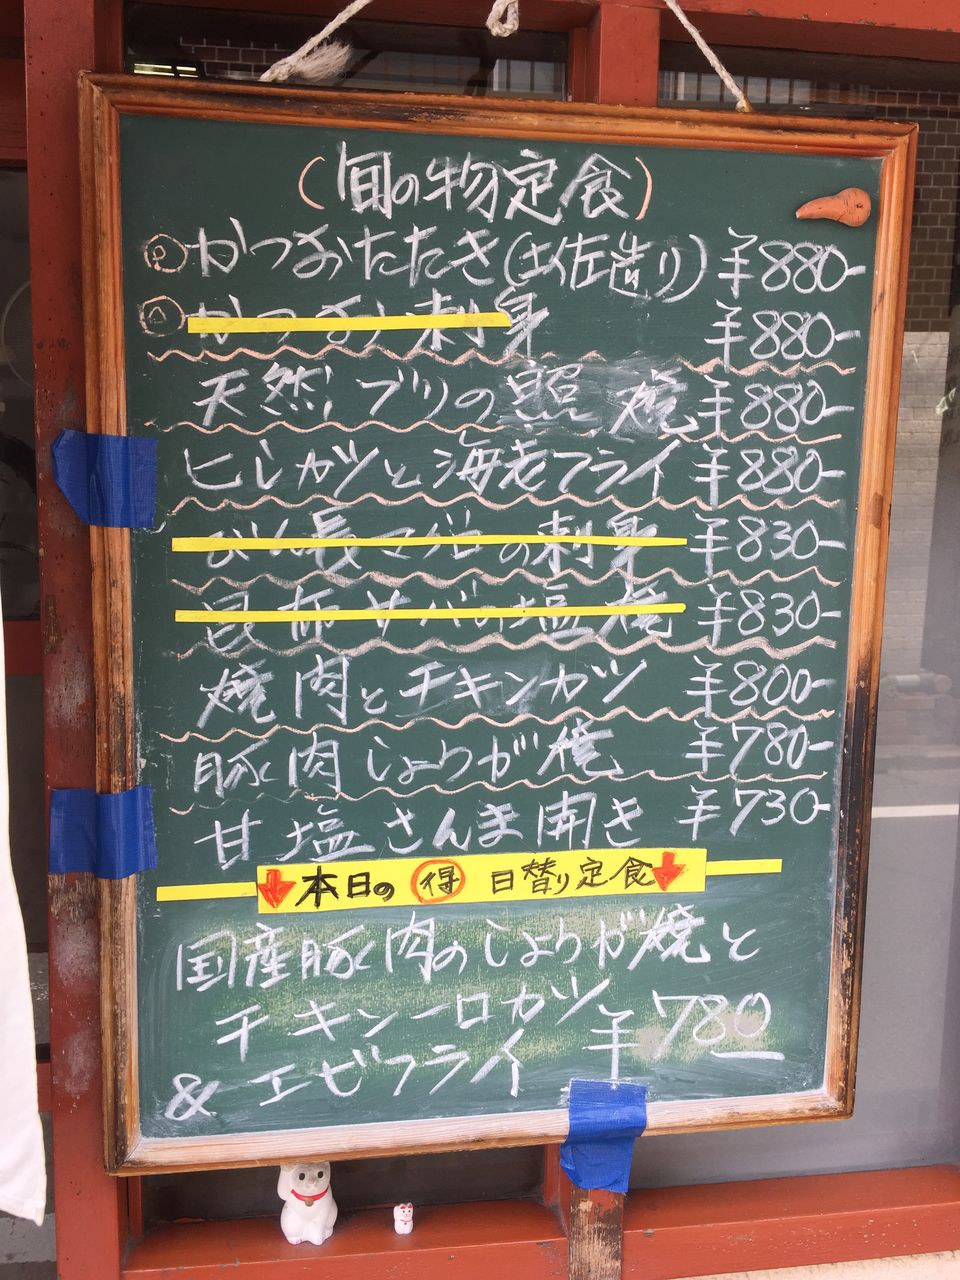 (旬の物定食)
かつおたたき(土佐造り) ¥880-
かつお刺身 ¥880-
天然ブリの照焼 ¥880-
ヒレカツと海老フライ ¥880-
びん長マグロの刺身 ¥830-
昆布サバの塩焼 ¥830-
焼肉とチキンカツ ¥800-
豚肉しょうが焼 ¥780-
甘塩さんま開き ¥730-
本日の 得 日替り定食
国産豚肉のしょうが焼と
チキン一口カツ ¥780
& エビフライ